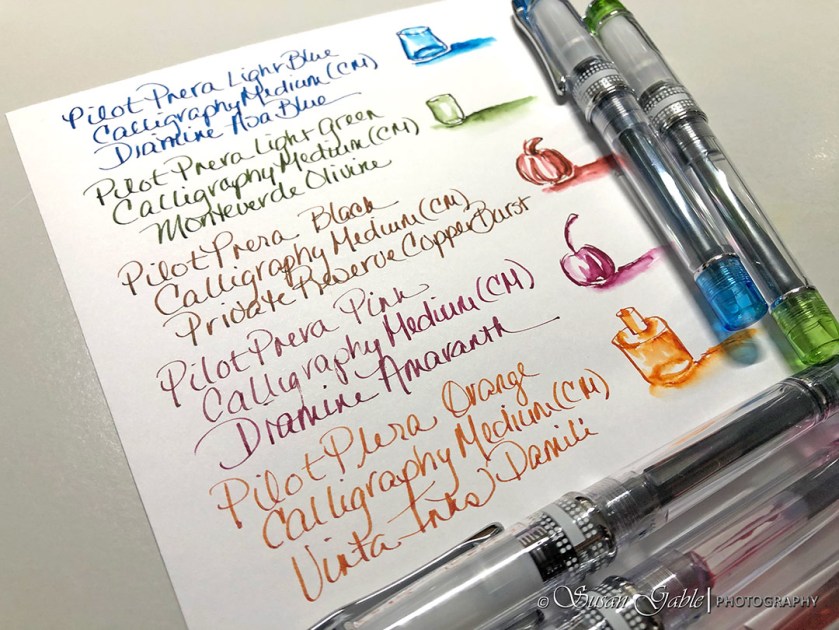 Pilot Prera Light Blue
Calligraphy Medium (CM)
Diamine Asa Blue
Pilot Prera Light Green
Calligraphy Medium (CM)
Monteverde Olivine
Pilot Prera Black
Calligraphy Medium (CM)
Private Reserve Copper Burst
Pilot Prera Pink
Calligraphy Medium (CM)
Diamine Amaranth
Pilot Prera Orange
Calligraphy Medium (CM)
Vinta Inks Damili
© Susan Gable | PHOTOGRAPHY